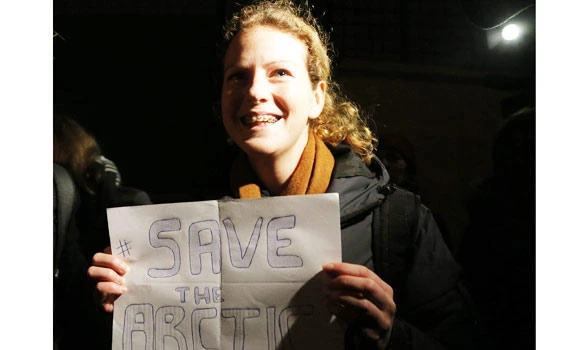 # SAVE
THE
ARCTIC